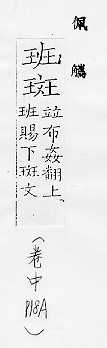 佩觿
班斑
竝布姦翻上
班賜下斑文
(卷中 P18A)